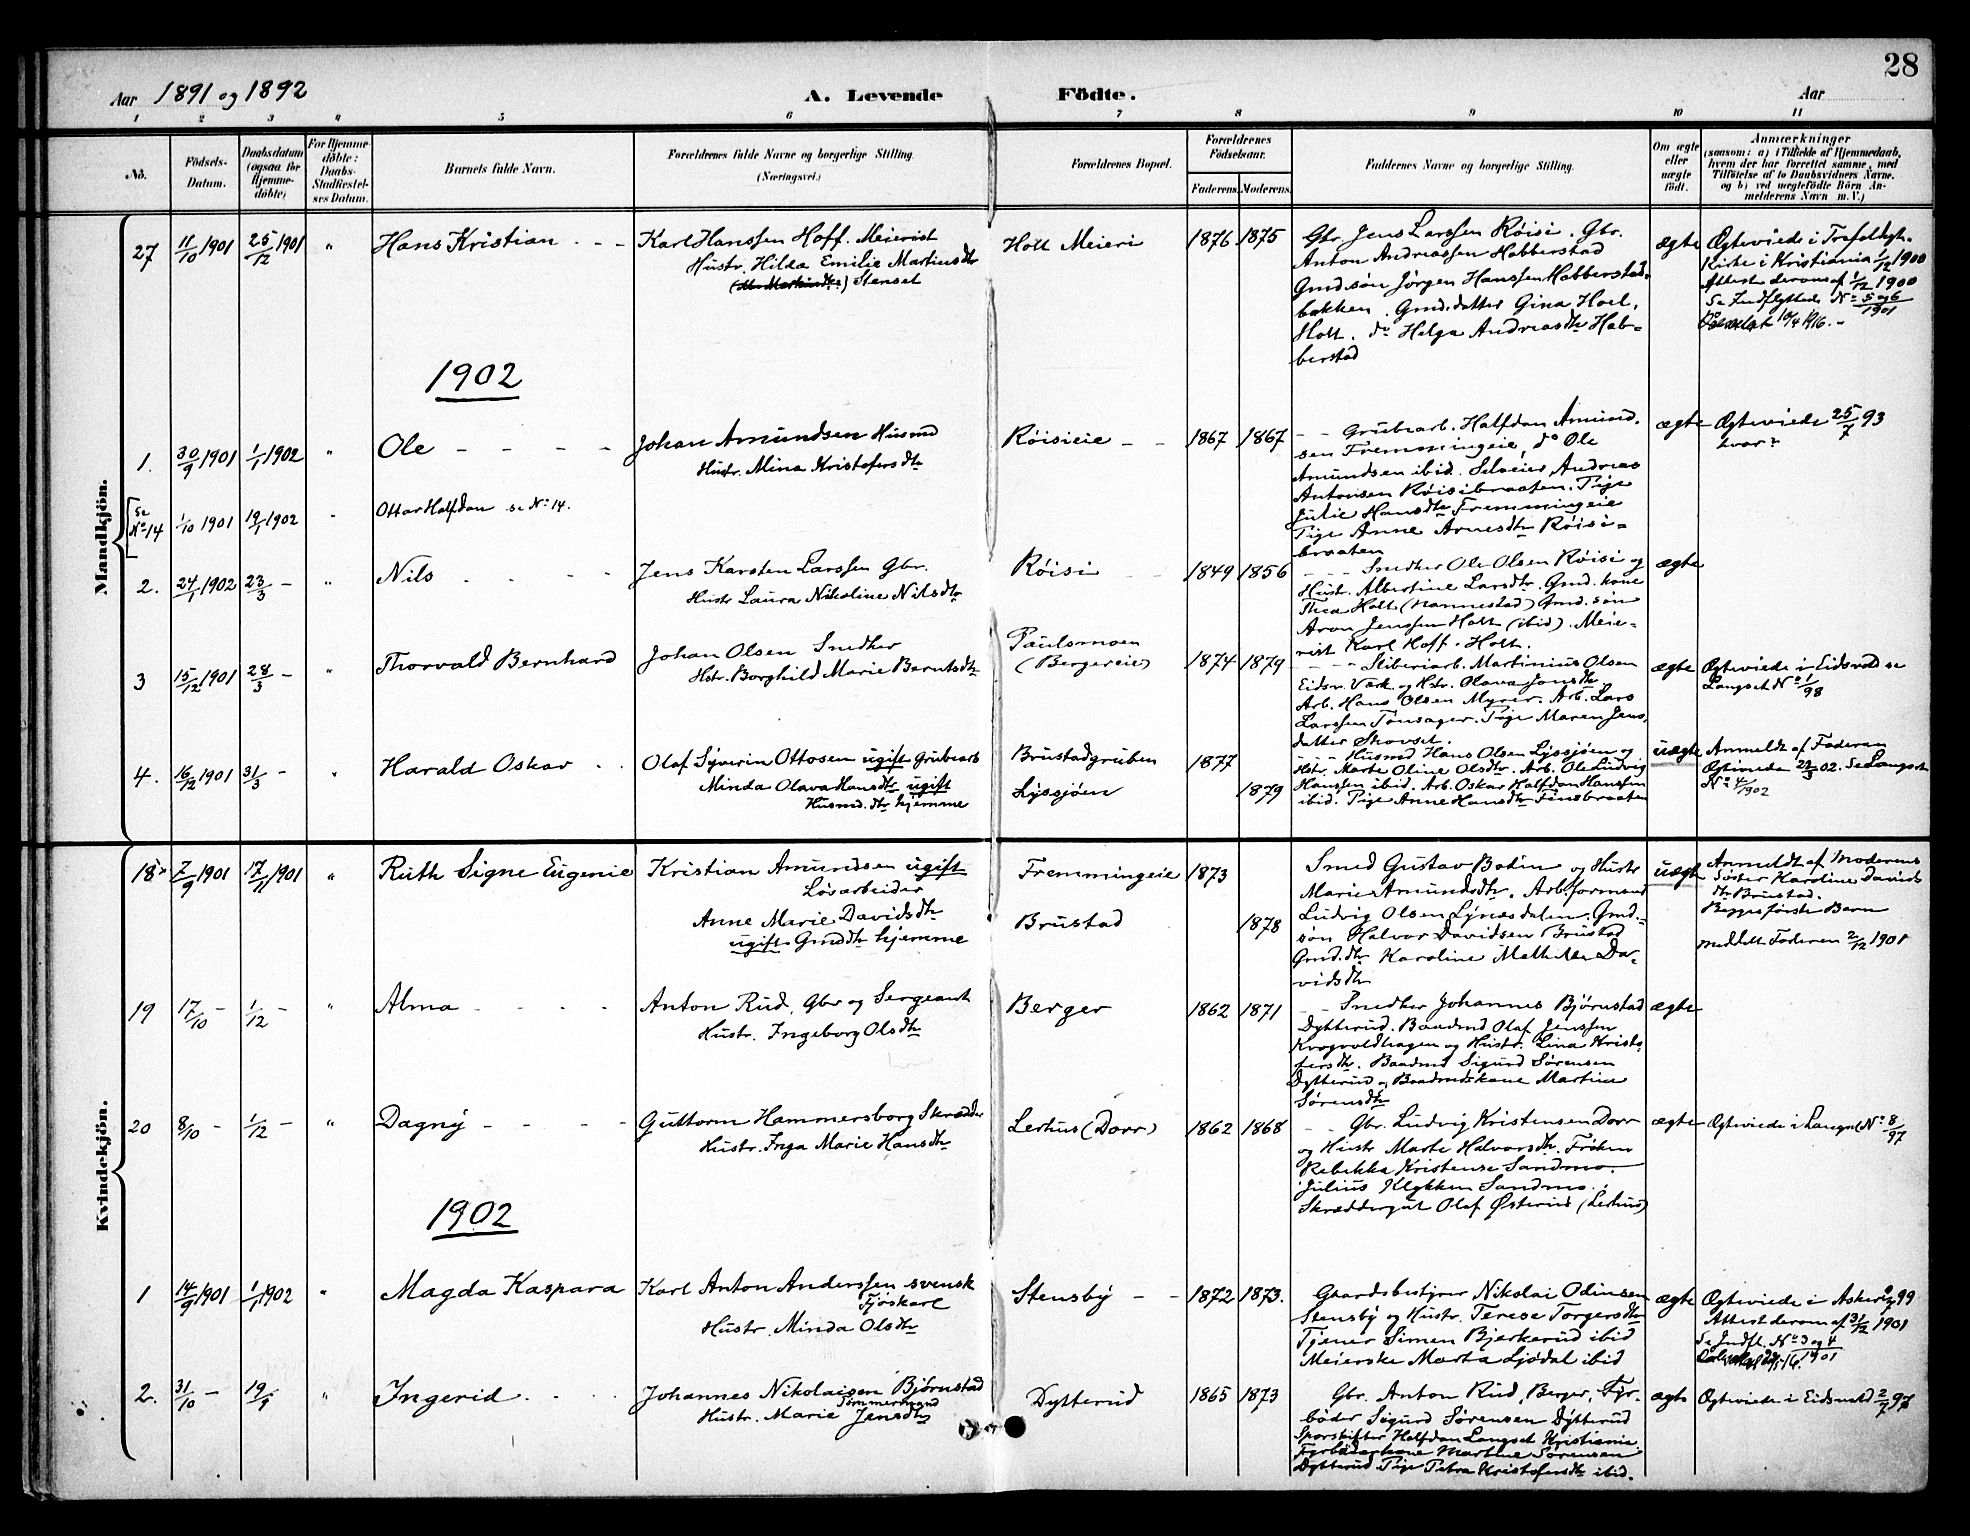 28
Aar 1891 og 1892 A. Levende Födte. Aar
1 2 3 4 5 6 7 8 9 10 11
No. Födsels-Datum. Daabsdatum (ogsaa for Hjemmedöbte) For Hjemmedöbte: Daabs-Stadfæstelses Datum. Barnets fulde Navn. Forældrenes fulde Navne og borgerlige Stilling. (Næringsvei.) Forældrenes Bopæl. Forældrenes Födselsaar. Faderens. Moderens. Faddernes Navne og borgerlige Stilling. Om ægte eller uægte födt. Anmærkninger (saasom: a) i Tilfælde af Hjemmedaab, hvem der har forrettet samme, med Tilföielse af to Daabsvidners Navne. og b) ved uægtefödte Börn Anmelderens Navn m.V.)
Mandkjön.
27 11/10 1901 25/12 1901 " Hans Kristian Karl Hanssen Hoff. Meierist
Hustr. Hilda Emilie Martinsdtr
Stenset
Holt Meieri 1876 1875
Gbr. Jens Larssen Röisi. Gbr.
Anton Andreassen Habberstad
Gmd.sön Jörgen Hanssen Habberstad-
bakken. Gmd.datter Gina Hoel,
Holt. do Helga Andreasdtr Hab-
berstad
ægte Ægteviede i Trefoldigh.
Kirke i Kristiania 1/12 1900
Attest derom af 1/12 1900
Se Indflyttede No 5 og 6
1901
10/4 1916.
1902
1. 30/9 1901 1/1 1902 " Ole Johan Amundsen Husmd
Hustr. Mina Kristofersdtr
Röisieie 1867 1867
Grubearb. Halfdan Amund-
sen Fremmingeie, do Ole
Amundsen ibid. Selveier Andreas
Antonsen Röisibraaten. Pige
Julie Hansdtr Fremmingeie
Pige Anne Arnesdtr Röisi-
braaten
ægte Ægteviede 25/7 93
hvor?
Se No 14 1/10 1901 19/1 1902 Ottar Halfdan se No 14.
2. 24/1 1902 23/3 - " Nils Jens Karsten Larssen Gbr.
Hustr Laura Nikoline Nilsdtr
Röisi 1849 1856
Snedker Ole Olsen Röisi og
Hustr. Albertine Larsdtr. Gmd.kone
Thea Holt (Nannestad) Gmd.sön
Aron Jenssen Holt (ibid). Meie-
rist Karl Hoff. Holt.
ægte
3 15/12 1901 28/3 - " Thorvald Bernhard Johan Olsen Snedker
Hstr. Borghild Marie Berntsdtr
Paulsmoen
(Bergereie)
1874 1879
Martinius Olsen
Eidsv. Værk og Hstr. Olava Jonsdtr
Arb. Hans Olsen Myrer. Arb. Lars
Larssen Tönsager. Pige Maren Jens-
datter Skovset.
ægte Ægteviede i Eidsvold se
Langset No 1/98
4. 16/12 1901 31/3 - " Harald Oskar Olaf Syverin Ottosen ugift Grubearb
Minda Olava Hansdtr ugift
Husmd.dtr hjemme
Brustadgruben 1877
Lyssjöen 1879
Husmd Hans Olsen Lyssjöen og
Hstr. Marte Oline Olsdtr. Arb. Ole Ludvig
Hanssen ibid. Arb. Oskar Halfdan Hanssen
ibid. Pige Anne Hansdtr Finsbraaten
uægte Anmeldt af Faderen
Ægteviede 02. Se Langset
No 4/1902
Kvindekjön.
18 7/9 1901 17/11 1901 " Ruth Signe Eugenie Kristian Amundsen ugift
Lösarbeider
Anne Marie Davidsdtr
ugift Gmddtr hjemme
Fremmingeie 1873
Brustad 1878
Smed Gustav Bodin og Hustr
Marie Amundsdtr. Arb.formand
Ludvig Olsen Lynæsdalen. Gmd.-
sön Halvor Davidsen Brustad
Gmd.dtr Karoline Mathilde Da-
vidsdtr
uægte Anmeldt af Moderens
Söster Karoline Davids
dtr Brustad.
Begges förste Barn
Meddelt Faderen 2/12 1901
19 17/10 - 1/12 - " Alma Anton Rud, Gbr og Sergeant
Hustr. Ingeborg Olsdtr
Berger 1862 1871
Snedker Johannes Björnstad
Dytterud. Baadmd Olaf Jenssen
Krogvoldhagen og Hustr. Lina Kristo-
fersdtr. Baadmd Sigurd Sörensen
Dytterud og Baadmdskone Martine
Sörensdtr
ægte
20 8/10 - 1/12 - " Dagny Guttorm Hammersborg Skrædder
Hustr. Inga Marie Hansdtr
Lerhus (Dorr) 1862 1868
Gbr. Ludvig Kristensen Dorr
og Hustr Marte Halvorsdtr. Fröken
Rebekka Kristense Sandmo.
Julius Klykken Sandmo.
Skræddergut Olaf Österud (Lerhus)
ægte Ægteviede i Langset No 8/97
1902
1 14/9 1901 1/1 1902 " Magda Kaspara Karl Anton Anderssen svensk
Fjöskarl
Hustr. Minda Olsdtr
Stensby 1872 1873.
Gaardsbestyrer Nikolai Odinsen
Stensby og Hustr. Terese Torgersdtr
Tjener Simen Bjerkerud ibid
Meierske Marta Ljödal ibid
ægte Ægteviede i Asker 99
Attest derom af 31/12 1901
Se Indfl. No 3 og 4
1901
2. 31/10 - 19/1 " Ingerid Johannes Nikolaisen Björnstad
Tömmermand
Hustr. Marie Jensdtr
Dytterud 1865 1873
Gbr. Anton Rud, Berger, Fyr-
böder Sigurd Sörensen Dytterud
Sporskifter Halfdan Langset Kristiania
Fyrböderkone Martine Sörensen
Dytterud Pige Petra Kristofersdtr ibid.
ægte Ægteviede i Eidsvold 2/7 97